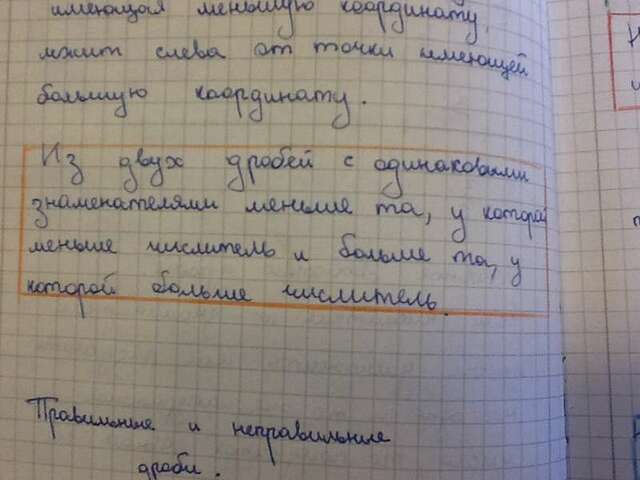 имеющая меньшую координату,
лежит слева от точки имеющей
большую координату.
Из двух дробей с одинаковыми
знаменателями меньше та, у которой
меньше числитель и больше та, у
которой больше числитель.
Правильные и неправильные
дроби.